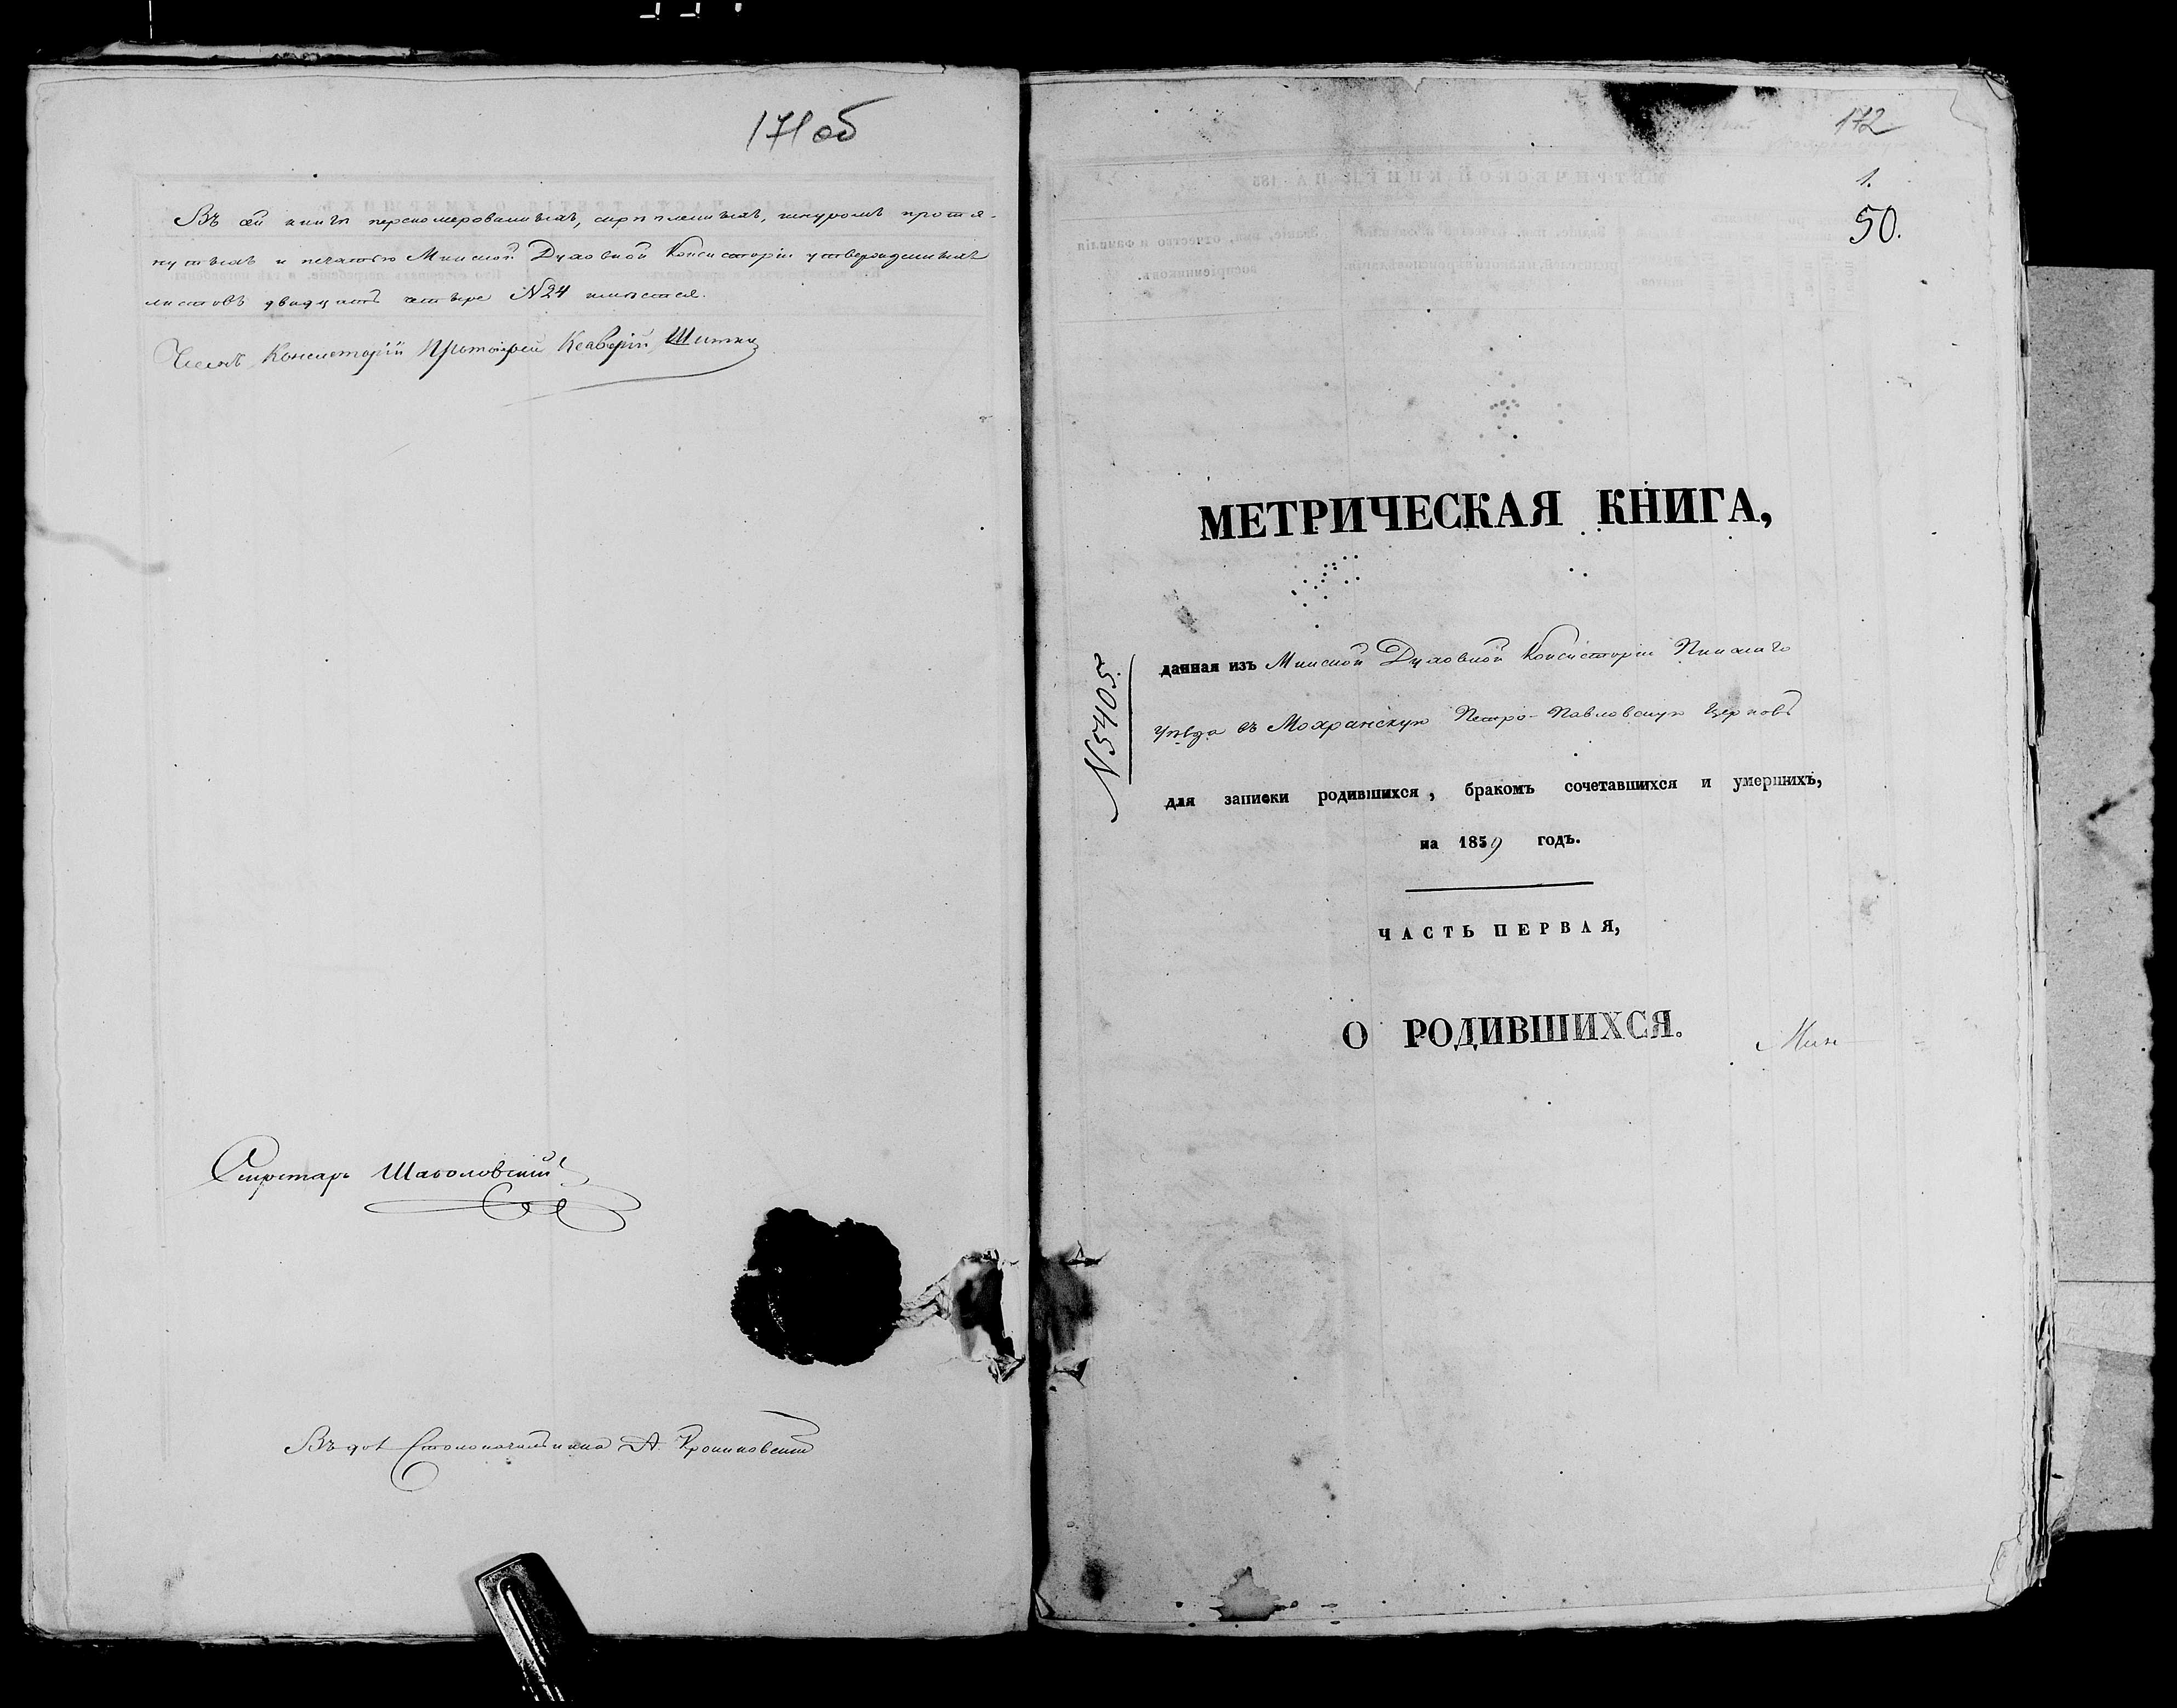 171 об
Въ сей книгѣ перенумерованныхъ, скрѣпленныхъ, шнуромъ протя-
нутыхъ и печатью Минской Духовной Консисторіи утвержденныхъ
листовъ двадцать четыре №24 имѣется.
Членъ Консисторіи Протоіерей Ксаверій
Секретарь
Въ дол. Столоначальника А.
172
1.
50.
МЕТРИЧЕСКАЯ КНИГА,
№5405.
данная изъ Минской Духовной Консисторіи Пинскаго
уѣзда въ Мохранскую Петро-Павловскую Церковь
для записки родившихся, бракомъ сочетавшихся и умершихъ,
на 1859 годъ.
ЧАСТЬ ПЕРВАЯ,
О РОДИВШИХСЯ.
Мин